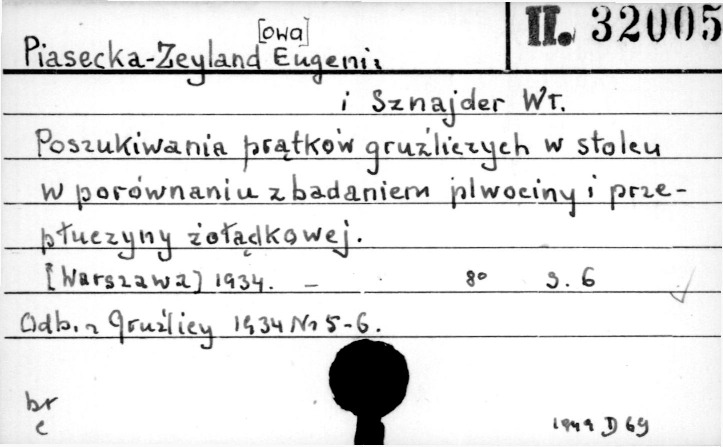 II. 32005
[owa]
Piasecka-Zeyland Eugenia
i Sznajder Wł.
Poszukiwania prątków gruźliczych w stolcu
w porównaniu z badaniem plwociny i prze-
płuczyny żołądkowej.
[Warszawa] 1934. – 8° S. 6
Odb. z Gruźlicy 1934 Nr 5-6.
br
c
1949 D 69